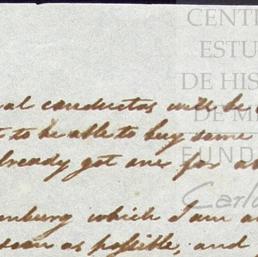 CENT
ESTU
DE HIS
DE M
FUND
Carl
al conductas will be
to be able to buy some
already got one for a
enburg which I am a
soon as possible, and